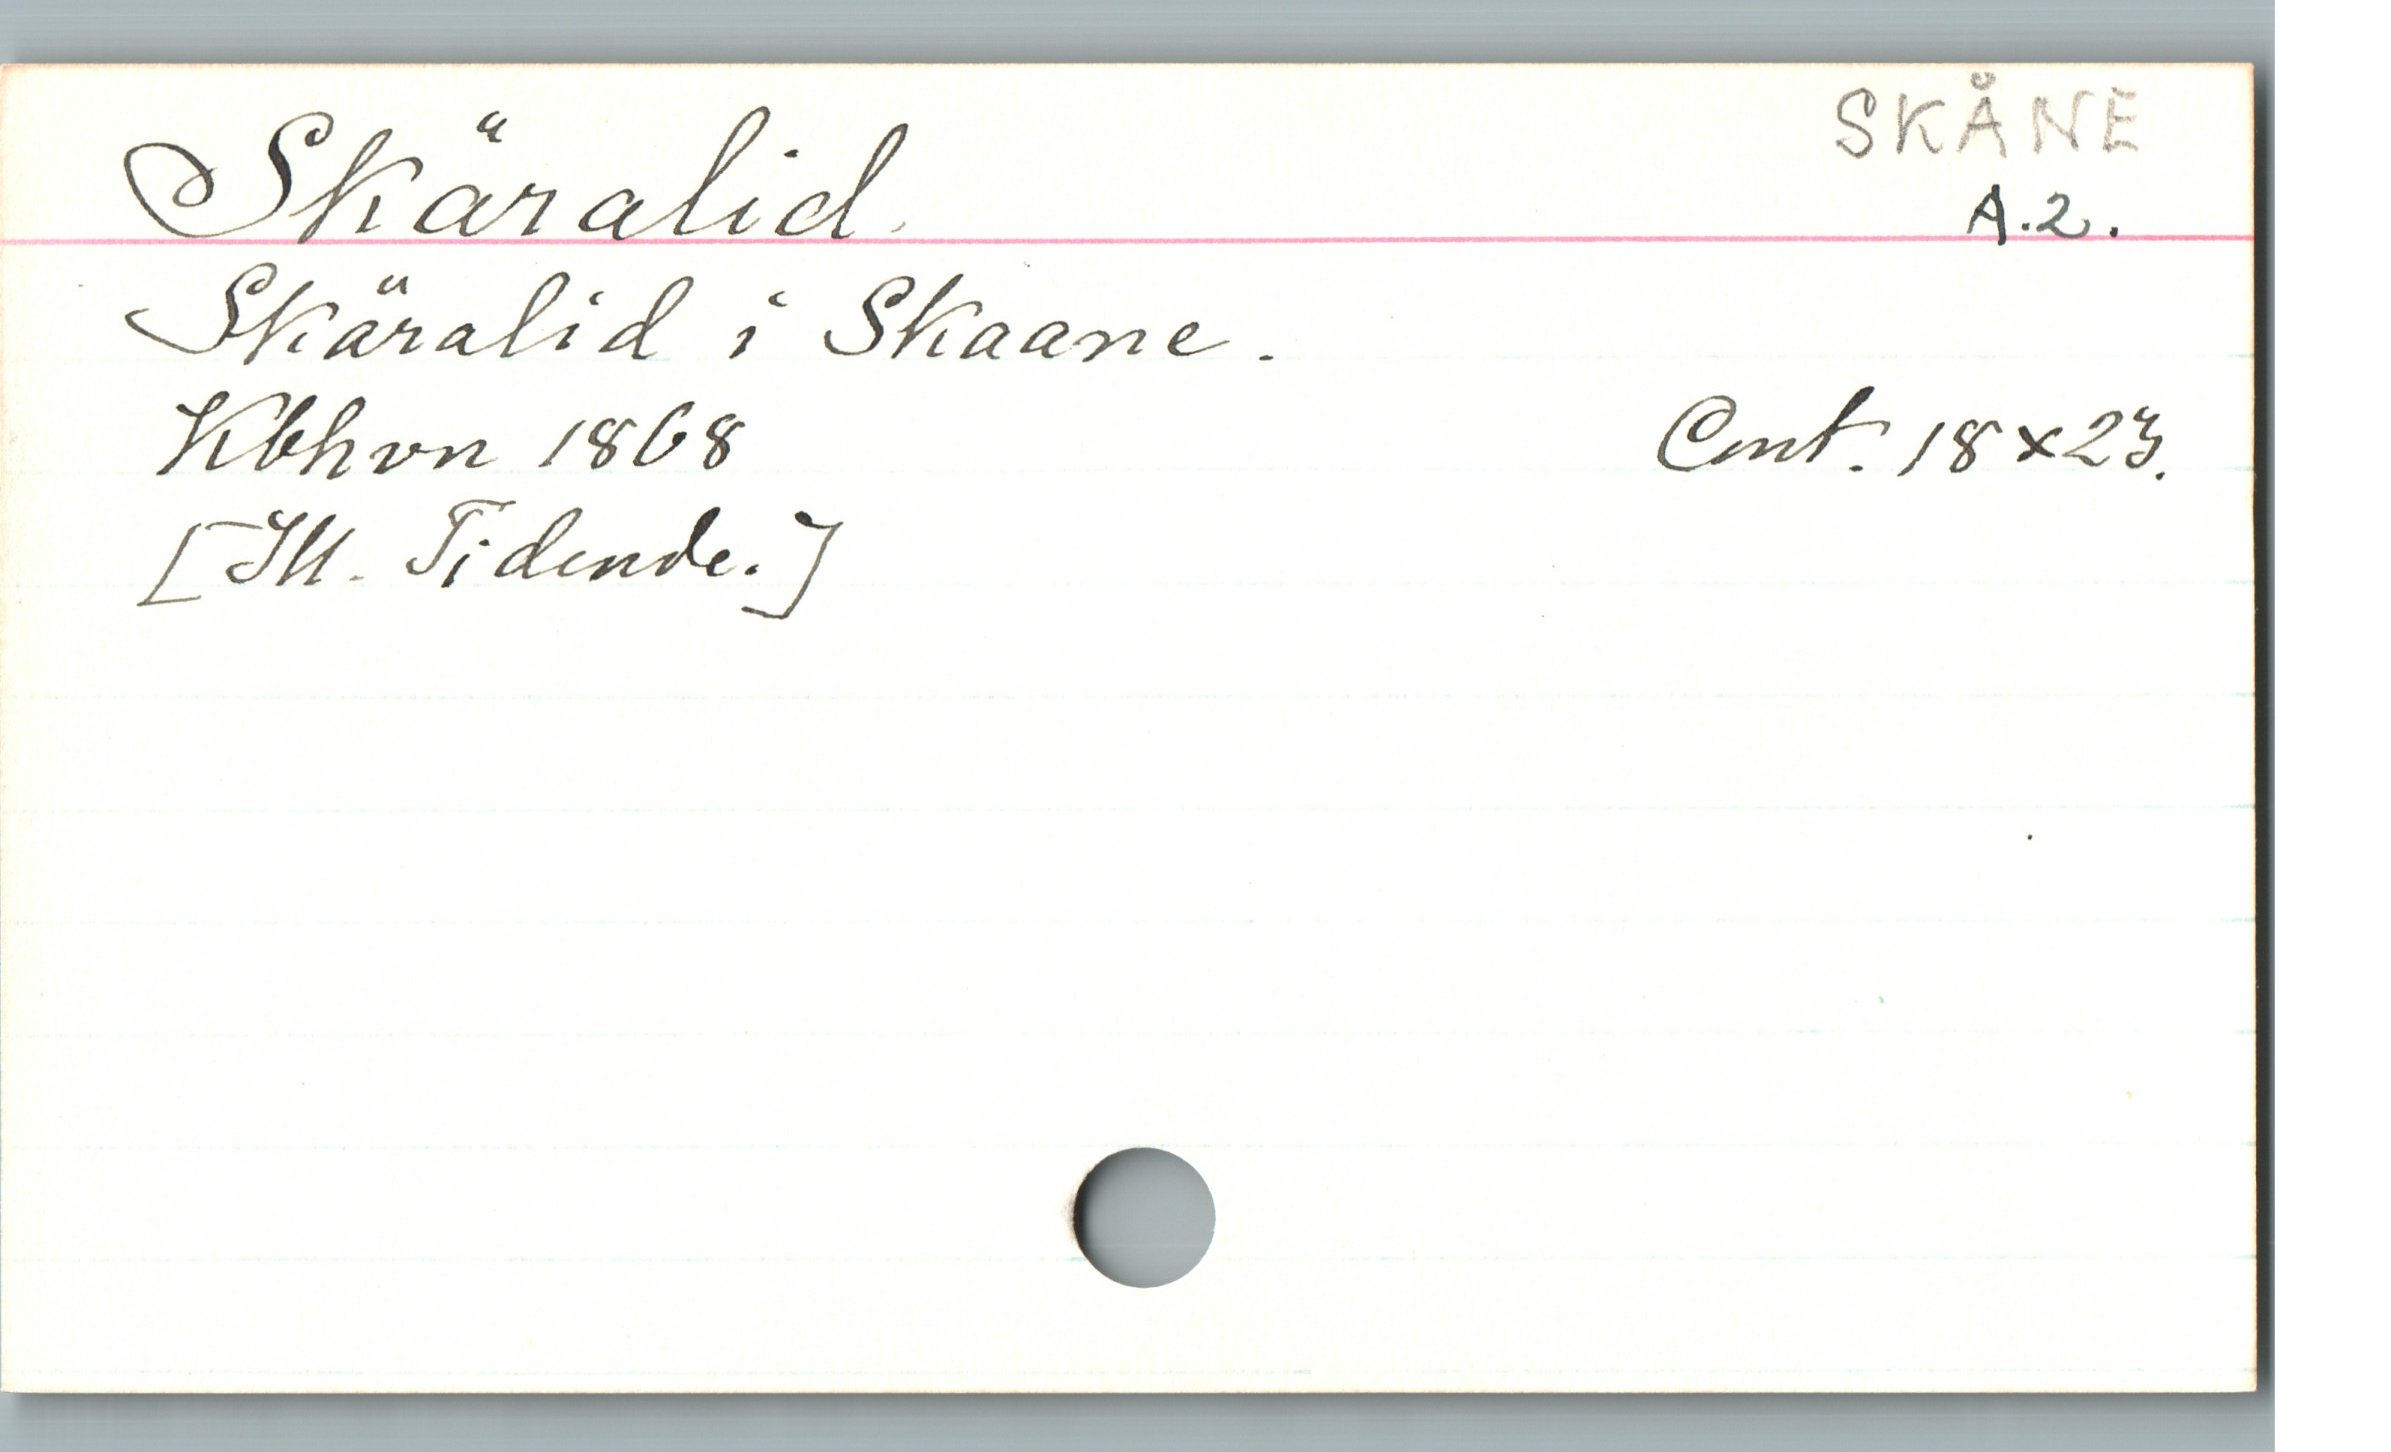 Skäralid.
SKÅNE
A.2.
Skäralid i Skaane.
Kbhvn 1868
Cent. 18×23.
[Ill. Tidende.]